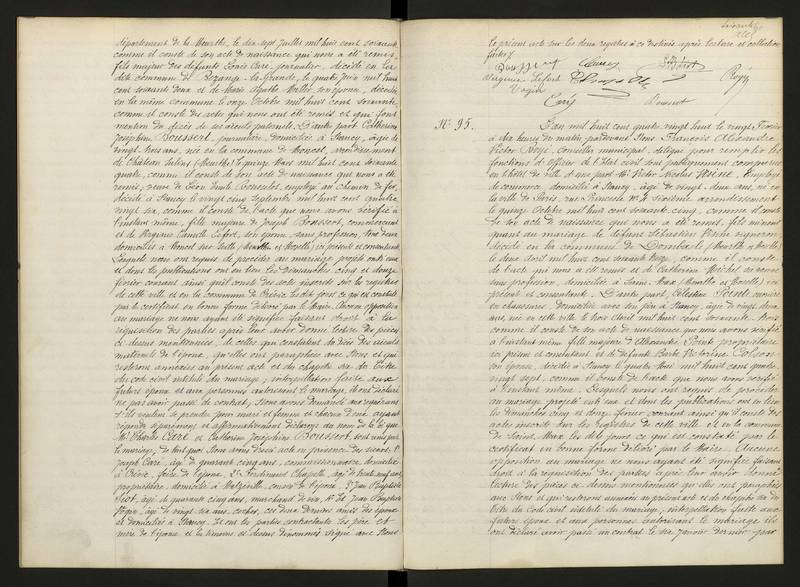 département de la Meurthe, le dix sept Juillet mil huit cent soixante
comme il conste de son acte de naissance que nous a été remis,
fils majeur des défunts Louis Caré, journalier, décédé en la
dite commune de Bezange-la-Grande, le quatre Juin mil huit
cent soixante douze et de Marie Agathe son épouse, décédée
en la même commune le onze Octobre mil huit cent soixante
comme il conste des actes qui nous ont été remis et qui font
mention du décès de ses aïeuls paternels. D'autre part Catherine
Joséphine Boussert, journalière, domiciliée à Nancy, âgée de
vingt trois ans, née en la commune de Moncel, arrondissement
de Château Salins (Meurthe) le quinze Mars mil huit cent soixante
quatre, comme il conste de son acte de naissance qui nous a été
remis, veuve de Léon Emile employé au chemin de fer,
décédé à Nancy le vingt cinq Septembre mil huit cent quatre
vingt six, comme il conste de l'acte que nous avons vérifié à
l'instant même, fille majeure de Joseph Boussert, commerçant
et de Virginie Lefort, son épouse, sans profession, tous deux
domiciliés à Moncel sur Seille (Meurthe et Moselle) ici présents et consentants.
Lesquels nous ont requis de procéder au mariage projeté entre eux
et dont les publications ont eu lieu les Dimanches cinq et douze
février courant ainsi qu'il conste des actes inscrits sur les registres
de cette ville et en la commune de ce qui est constaté
par le certificat en bonne forme délivré par le Maire. Aucune opposition
au mariage ne nous ayant été signifiée faisant droit à la
réquisition des parties après leur avoir donné lecture des pièces
ci dessus mentionnées, de celles qui constatent du décès des aïeuls
maternels de l'épouse, qu'elles ont paraphées avec Nous et qui
resteront annexées au présent acte et du chapitre six du titre
du code civil intitulé du mariage, interpellation faite aux
futurs époux et aux personnes autorisant le mariage, ils ont déclaré
ne pas avoir passé de contrat, Nous avons demandé aux requérants
s'ils veulent se prendre pour mari et femme et chacun d'eux ayant
répondu séparément et affirmativement déclarons au nom de la loi que
Mr Charles Caré et Catherine Joséphine Boussert sont unis par
le mariage, de tout quoi Nous avons dressé acte en présence des sieurs 1°
Joseph Caré, âgé de quarante cinq ans, commissionnaire, domicilié
à frère de l'époux, 2° Ferdinand Chapelle, âgé de trente
propriétaire, domicilié à Malzéville, cousin de l'épouse, 3° Jean Baptiste
âgé de quarante cinq ans, marchand de vin, 4° et Jean Baptiste
Vogin, âgé de vingt six ans, cocher, ces deux derniers amis des époux
et domiciliés à Nancy. Et ont les parties contractantes les père et
mère de l'épouse et les témoins ci dessus dénommés signé avec Nous
le présent acte sur les deux registres à ce destinés après lecture et collation
faites.
Virginie Lefort
Vogin
Caré
Boussert
N° 95.
L'an mil huit cent quatre vingt huit le vingt Février
à dix heures du matin par devant Nous François Alexandre
Victor Boyé, Conseiller municipal, délégué pour remplir les
fonctions d'Officier de l'Etat civil sont publiquement comparus
en l'hôtel de ville d'une part Mr Victor Nicolas Peine, Employé
de commerce, domicilié à Nancy, âgé de vingt deux ans, né en
la ville de Paris, rue arrondissement
le quinze Octobre mil huit cent soixante cinq, comme il conste
de son acte de naissance qui nous a été remis, fils mineur
quant au mariage de défunt Sébastien Peine vigneron
décédé en la commune de Dombasle (Meurthe et Moselle)
le deux Avril mil huit cent soixante treize, comme il conste
de l'acte qui nous a été remis et de Catherine Michel sa veuve
sans profession, domiciliée à Saint-Max (Meurthe et Moselle) ici
présente et consentante. D'autre part, Célestine Pointe, ouvrière
en chaussures, domiciliée avec son père à Nancy, âgée de vingt cinq
ans, née en cette ville le trois Avril mil huit cent soixante
comme il conste de son acte de naissance que nous avons vérifié
à l'instant même fille majeure d'Alexandre Pointe propriétaire
ici présent et consentant et de défunte Barbe Victorine Colson
son épouse, décédée à Nancy le quatre Mai mil huit cent quatre
vingt sept, comme il conste de l'acte que nous avons vérifié
à l'instant même. Lesquels nous ont requis de procéder
au mariage projeté entre eux et dont les publications ont eu lieu
les Dimanches cinq et douze février courant ainsi qu'il conste des
actes inscrits sur les registres de cette ville et en la commune
de Saint-Max les dits jours ce qui est constaté par le
certificat en bonne forme délivré par le Maire. Aucune
opposition au mariage ne nous ayant été signifiée faisant
droit à la réquisition des parties après leur avoir donné
lecture des pièces ci dessus mentionnées qu'elles ont paraphées
avec Nous et qui resteront annexées au présent acte et du chapitre six du
titre du Code civil intitulé du mariage, interpellation faite aux
futurs époux et aux personnes autorisant le mariage ils
ont déclaré avoir passé un contrat le six janvier dernier par